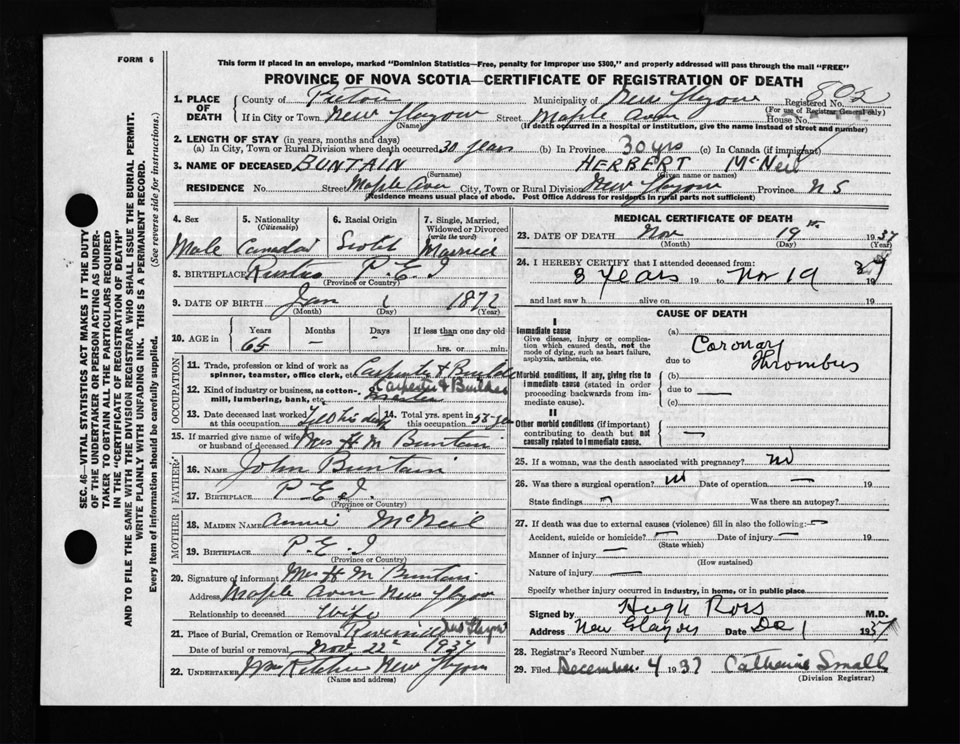 FORM 6
This form if placed in an envelope, marked "Dominion Statistics—Free, penalty for improper use $300," and properly addressed will pass through the mail "FREE"
PROVINCE OF NOVA SCOTIA—CERTIFICATE OF REGISTRATION OF DEATH
1. PLACE OF DEATH County of Pictou Municipality of New Glasgow Registered No. 802
(For use of Registrar General only)
If in City or Town New Glasgow Street Maple Aven House No.
(Name) (If death occurred in a hospital or institution, give the name instead of street and number)
2. LENGTH OF STAY (in years, months and days)
(a) In City, Town or Rural Division where death occurred 30 years (b) In Province 30 yrs (c) In Canada (if immigrant)
3. NAME OF DECEASED BUNTAIN HERBERT McNeil
(Surname) (Given name or names)
RESIDENCE No. Street Maple Ave City, Town or Rural Division New Glasgow Province N S
(Residence means usual place of abode. Post Office Address for residents in rural parts not sufficient)
SEC. 46—VITAL STATISTICS ACT MAKES IT THE DUTY
OF THE UNDERTAKER OR PERSON ACTING AS UNDER-
TAKER TO OBTAIN ALL THE PARTICULARS REQUIRED
IN THE "CERTIFICATE OF REGISTRATION OF DEATH"
AND TO FILE THE SAME WITH THE DIVISION REGISTRAR WHO SHALL ISSUE THE BURIAL PERMIT.
WRITE PLAINLY WITH UNFADING INK. THIS IS A PERMANENT RECORD.
Every item of Information should be carefully supplied. (See reverse side for instructions.)
4. Sex 5. Nationality 6. Racial Origin 7. Single, Married,
(Citizenship) Widowed or Divorced
(write the word)
Male Canada Scotch Married
8. BIRTHPLACE P. E. I
(Province or Country)
9. DATE OF BIRTH Jan 1 1872
(Month) (Day) (Year)
10. AGE in Years Months Days If less than one day old
65 — — hrs. or min.
OCCUPATION
11. Trade, profession or kind of work as Carpenter & Builder
spinner, teamster, office clerk, etc.
12. Kind of industry or business, as cotton- Carpenter & Builder
mill, lumbering, bank, etc.
13. Date deceased last worked 14. Total yrs. spent in
at this occupation at this occupation
15. If married give name of wife
or husband of deceased Mrs H M Buntain
FATHER
16. NAME John Buntain
17. BIRTHPLACE P. E. I.
(Province or Country)
MOTHER
18. MAIDEN NAME Annie McNeil
19. BIRTHPLACE P. E. I
(Province or Country)
20. Signature of informant Mrs H M Buntain
Address Maple Aven New Glasgow
Relationship to deceased Wife
21. Place of Burial, Cremation or Removal Riverside New Glasgow
Date of burial or removal Nov. 22nd 1937
22. UNDERTAKER New Glasgow
(Name and address)
MEDICAL CERTIFICATE OF DEATH
23. DATE OF DEATH Nov 19th 1937
(Month) (Day) (Year)
24. I HEREBY CERTIFY that I attended deceased from:
3 Years 19 to Nov 19 37
and last saw h alive on 19
CAUSE OF DEATH
I
Immediate cause (a) Coronary
Give disease, injury or complica-
tion which caused death, not the due to Thrombus
mode of dying, such as heart failure,
asphyxia, asthenia, etc.
Morbid conditions, if any, giving rise to (b)
immediate cause (stated in order due to —
proceeding backwards from im-
mediate cause). (c)
II
Other morbid conditions (if important)
contributing to death but not —
causally related to immediate cause.
25. If a woman, was the death associated with pregnancy? no
26. Was there a surgical operation? no Date of operation — 19
State findings — Was there an autopsy?
27. If death was due to external causes (violence) fill in also the following: —
Accident, suicide or homicide? — Date of injury — 19
(State which)
Manner of injury —
(How sustained)
Nature of injury —
Specify whether injury occurred in industry, in home, or in public place
Signed by Hugh Ross M.D.
Address New Glasgow Date Dec 1 1937
28. Registrar's Record Number
29. Filed December 4 1937 Catherine Small
(Division Registrar)